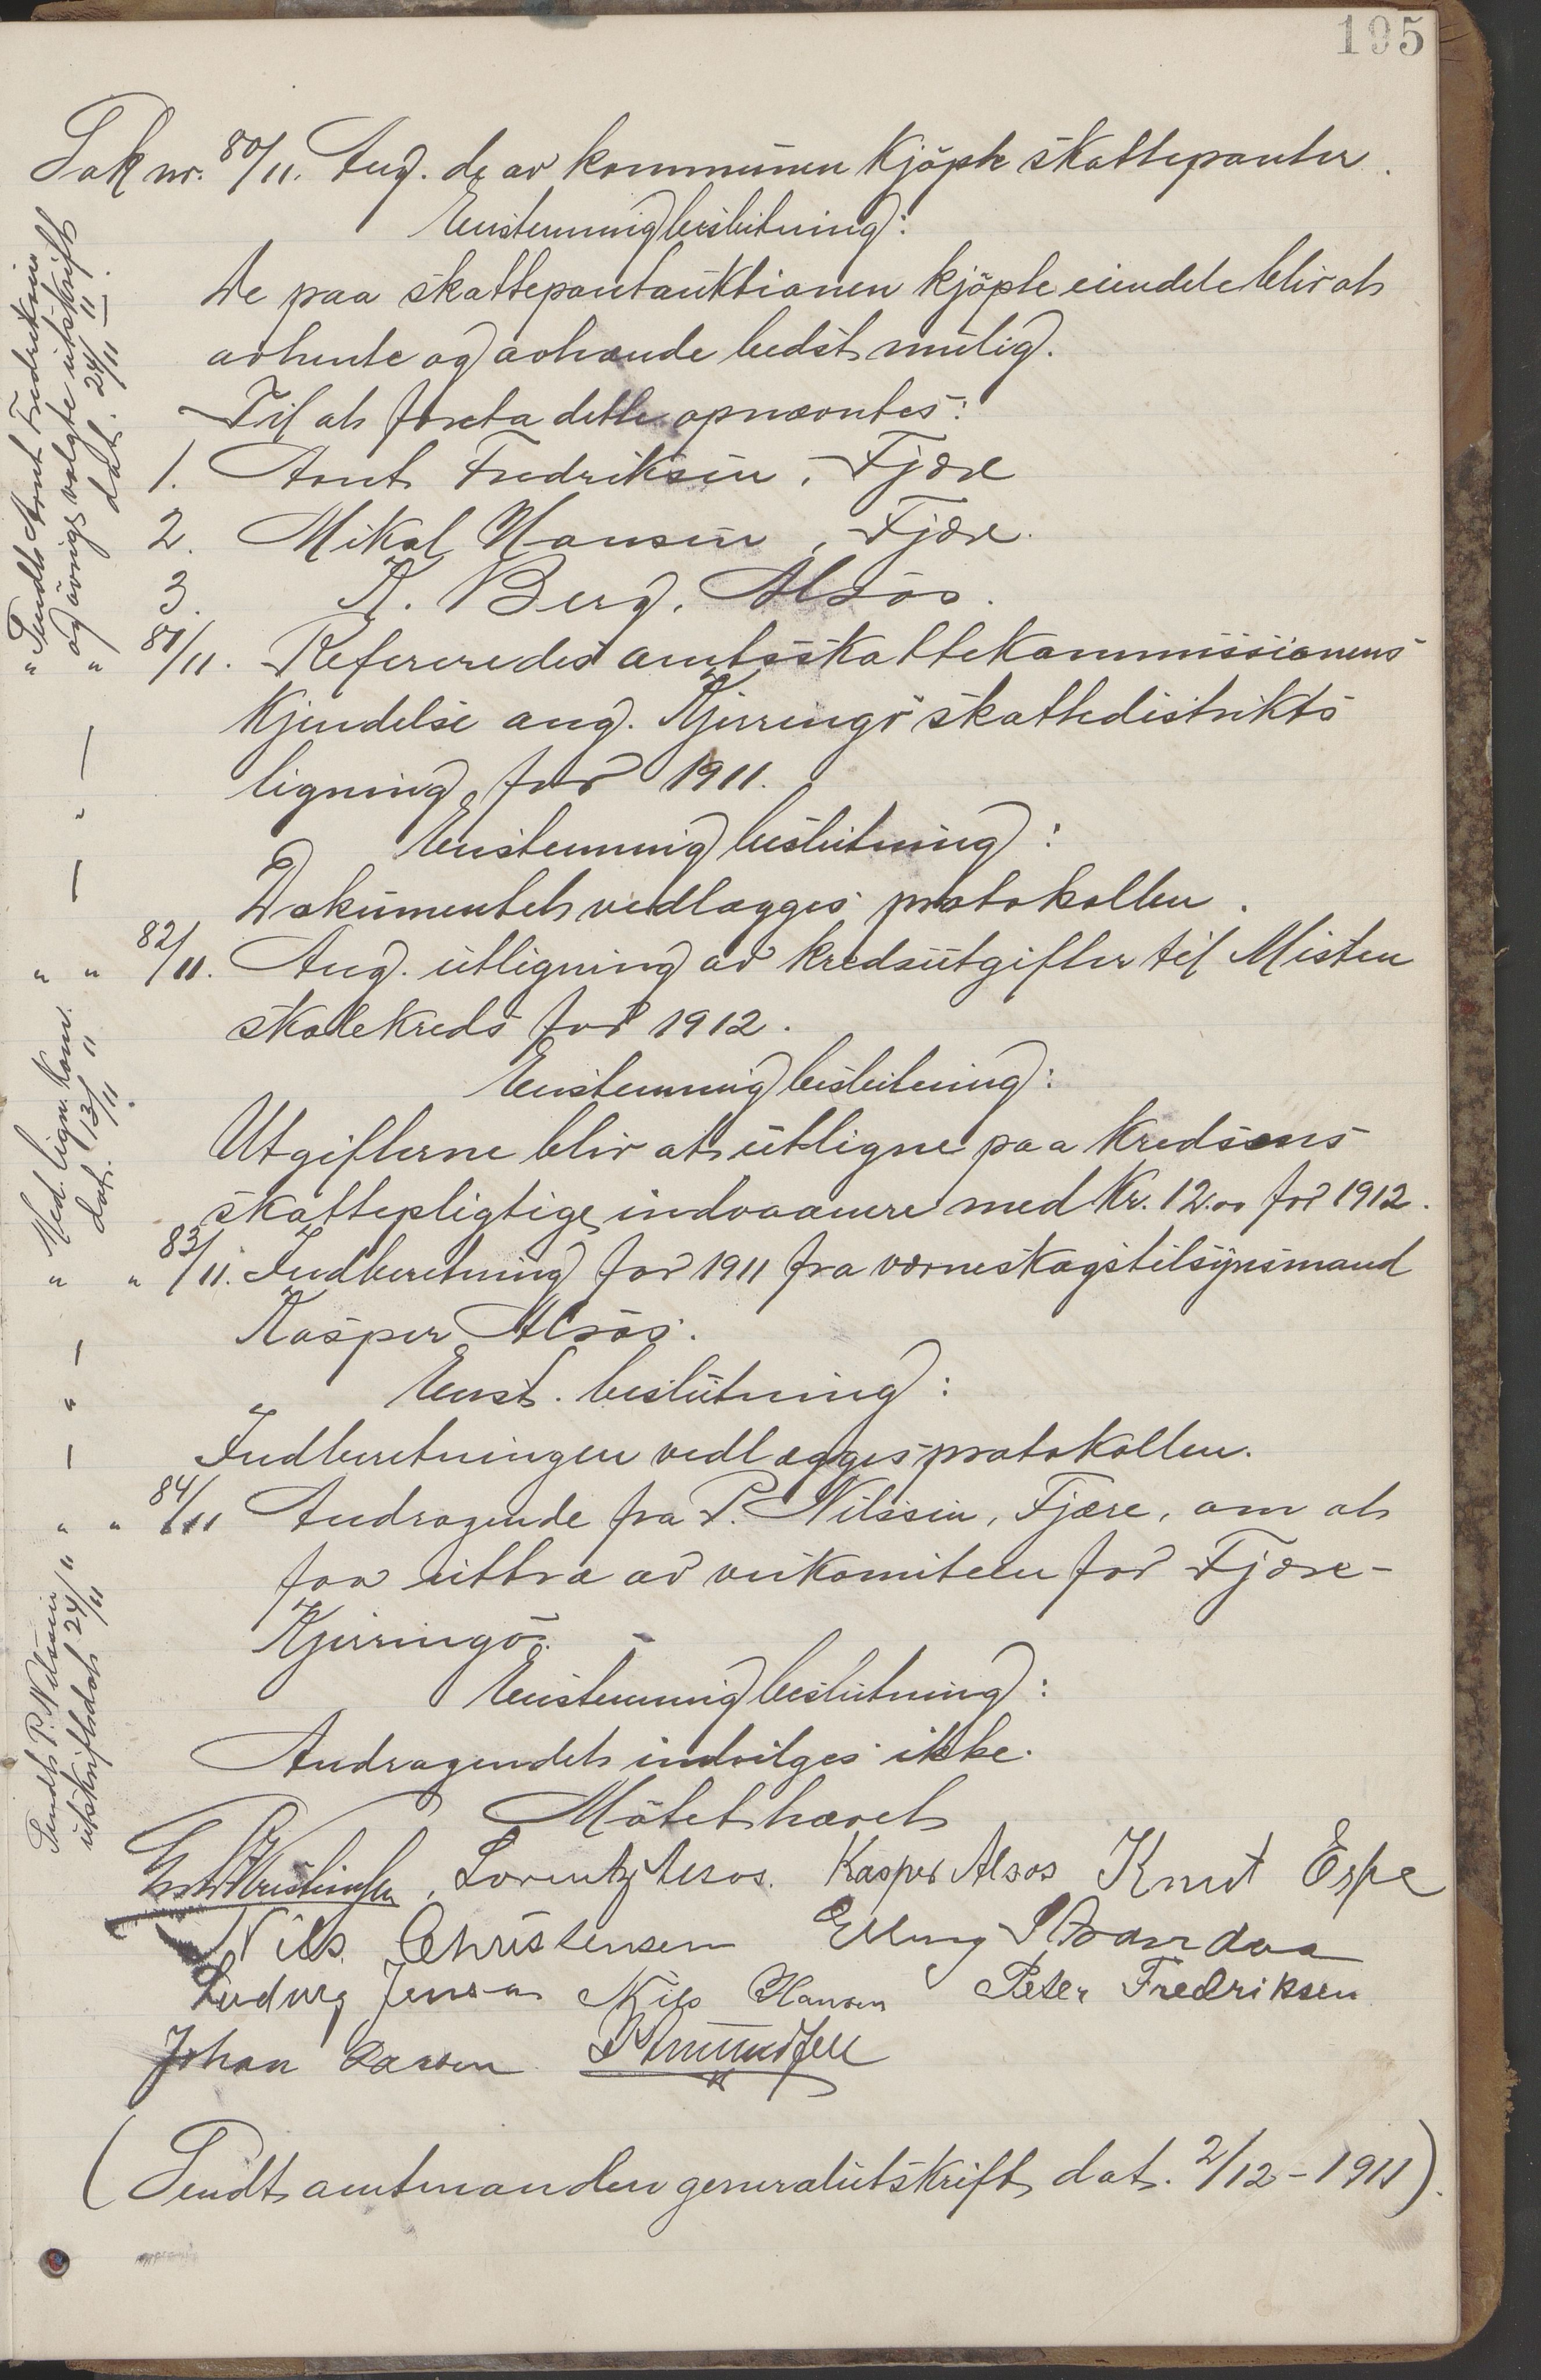 195
Sak nr. 80/11. Ang. de av kommunen kjøpte skattepanter.
Enstemmig beslutning:
De paa skattepantauktionen kjøpte eiendele blir at
avhente og avhænde bedst mulig.
Til at foreta dette opnævntes:
1. Arnt Fredriksen, Fjære
2. Mikal Hansen, Fjære.
3. K. Berg, Alsøs.
" " 81/11. Refereredes amtsskattekommissionens
kjendelse ang. Kjerringø skattedistrikts
ligning for 1911.
Enstemmig beslutning:
Dokumentet vedlægges protokollen.
" " 82/11. Ang. utligning av kredsutgifter til Misten
skolekreds for 1912.
Enstemmig beslutning:
Utgifterne blir at utligne paa kredsens
skattepligtige indvaanere med Kr. 12.00 for 1912.
" " 83/11. Indberetning for 1911 fra værneskogstilsynsmand
Kasper Alsøs.
Enst. beslutning:
Indberetningen vedlægges protokollen.
" " 84/11 Andragende fra P. Nilssen, Fjære, om at
faa uttræ av veikomiteen for Fjære-
Kjerringø.
Enstemmig beslutning:
Andragendet indvilges ikke.
Møtet hævet
Christensen, Lorentz Alsos. Kasper Alsos Knut Espe
Nils Christensen Elling Strandaa
Ludvig Jensen Nils Hansen Peter Fredriksen
Johan Larsen
(Sendt amtmanden generalutskrift dat. 2/12-1911).
Sendt Arnt Fredriksen
og øvrige valgte utskrift
dat. 24/11 11.
Med. lign. kom.
dat. 13/11 11.
Sendt P. Nilssen
utskrift dat 24/11 11